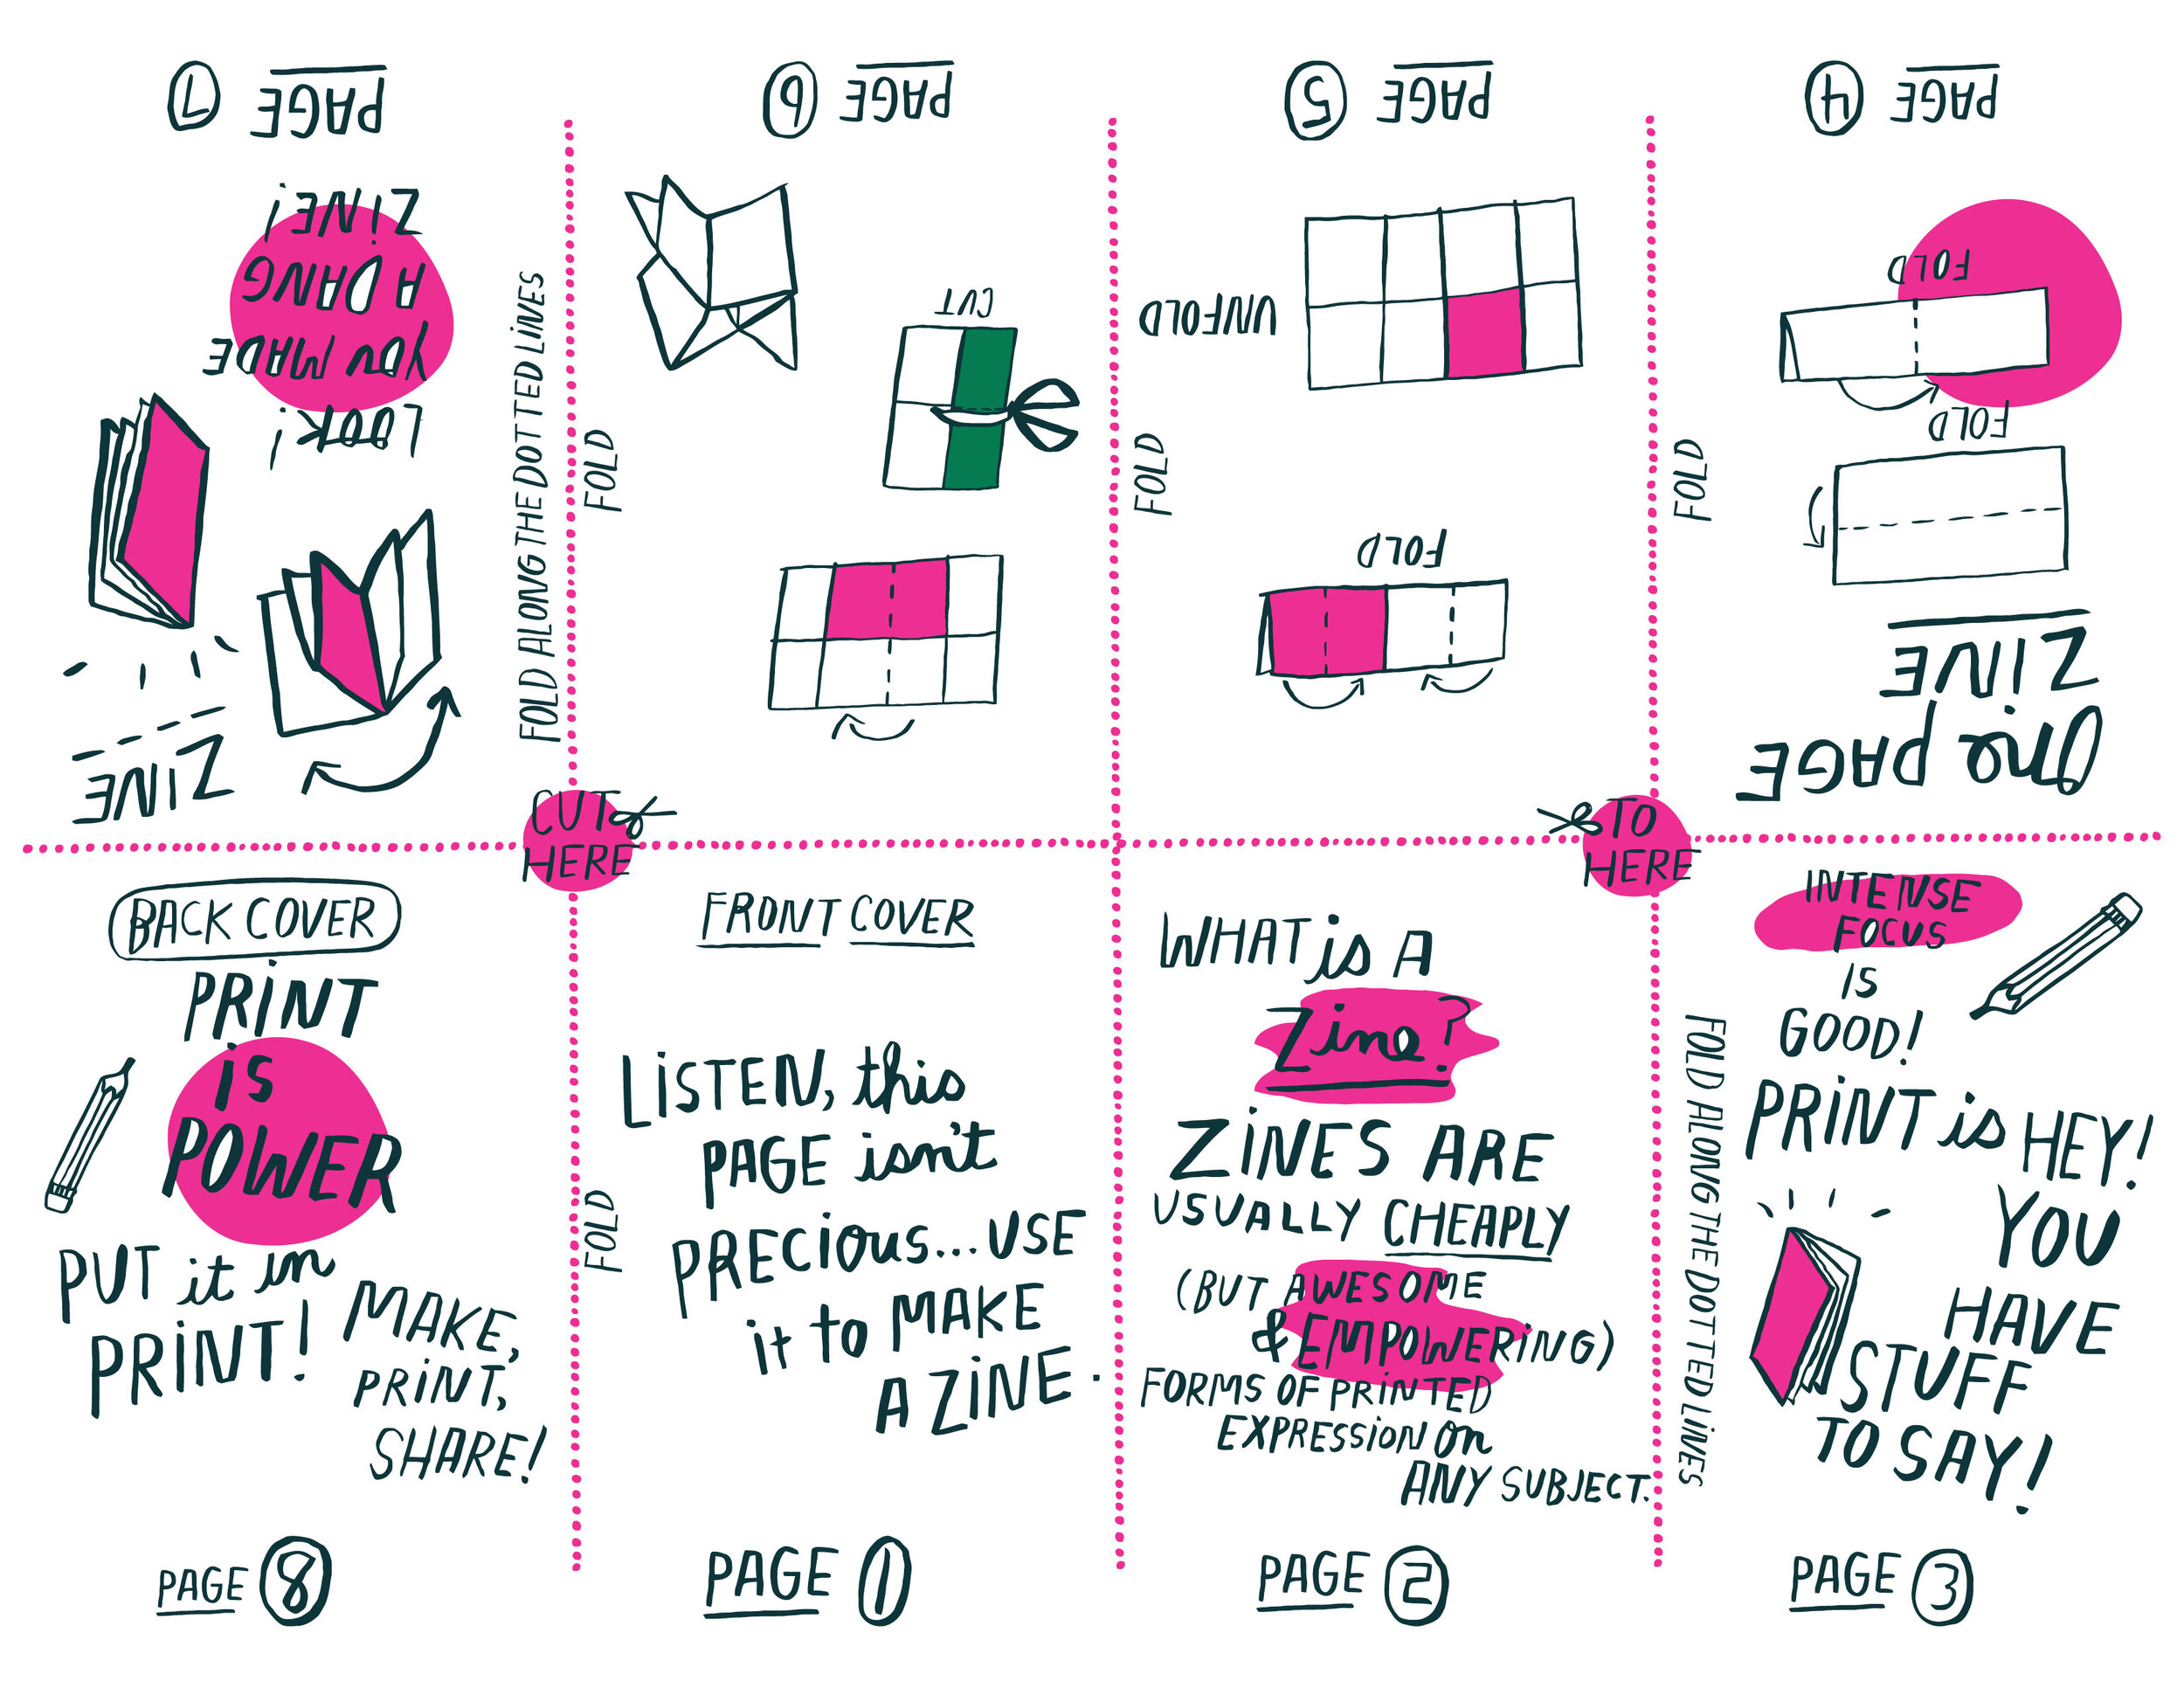 FRONT COVER
LiSTEN, this
PAGE isn't
PRECious... USE
it to MAKE
A ZiNE.
PAGE 1
WHAT is A
Zine?
ZiNES ARE
USUALLY CHEAPLY
(BUT AWESOME
& EMPOWERiNG)
FORMS OF PRiNTED
EXPRESSiON On
ANY SUBJECT.
PAGE 2
INTENSE
FOCUS
IS
GOOD!
PRiNT is HEY!
YOU
HAVE
STUFF
TO SAY!
PAGE 3
One PAGE
ZiNE
FOLD
FOLD
PAGE 4
FOLD
UNFOLD
PAGE 5
CUT
PAGE 6
ZINE
Look!
YOU MADE
A DANG
ZiNE!
PAGE 7
BACK COVER
PRiNT
is
POWER
PUT it in
PRiNT!
MAKE,
PRiNT,
SHARE!
PAGE 8
FOLD ALONG THE DOTTED LiNES
FOLD
FOLD
FOLD
CUT
HERE
TO
HERE
FOLD
FOLD ALONG THE DOTTED LiNES